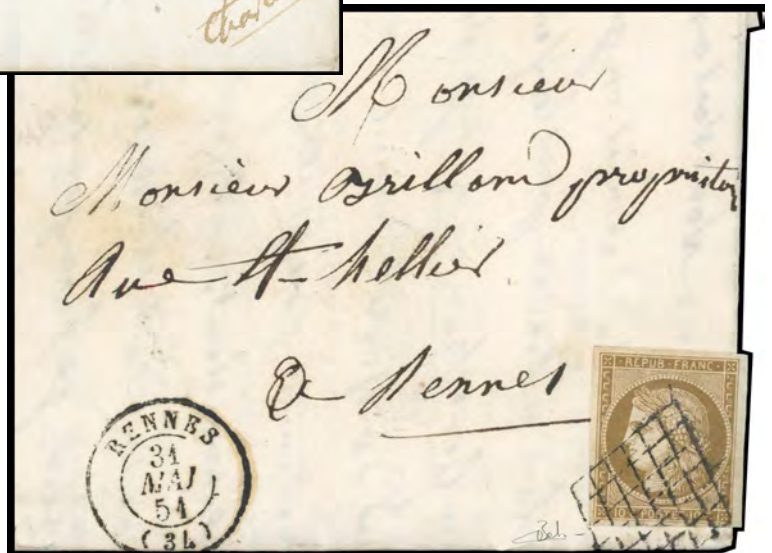 Monsieur
Monsieur propriétar
Rue St hellier
a Rennes
RENNES
31
MAI
51
(34)
REPUB FRANC
10 POSTES 10